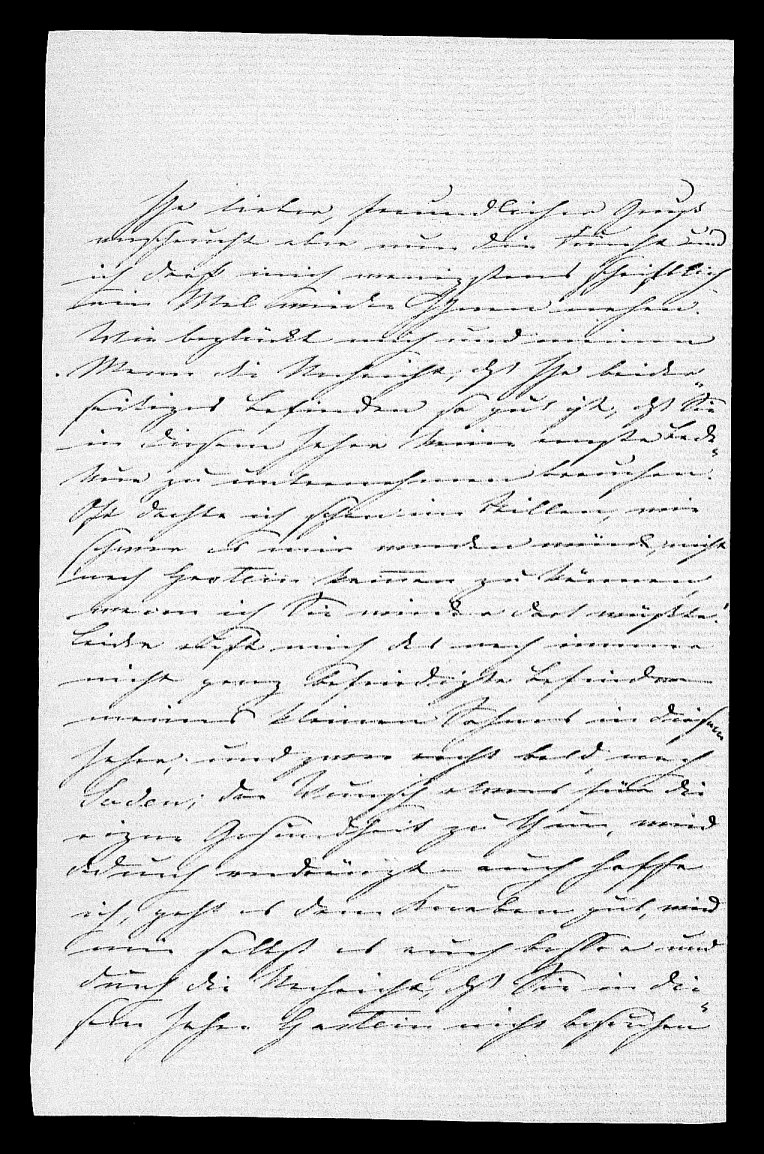 Ihr lieber, freundlicher Gruß
verscheucht aber nun die Furcht und
ich darf mich wenigstens schriftlich
ein Mal wieder Ihnen nahen.
Wie beglückt mich und meinen
Mann die Nachricht, daß Ihr beider-
seitiges Befinden so gut ist, daß Sie
in diesem Jahre keine ernste Bade-
kur zu unternehmen brauchen.
Oft dachte ich schon im Stillen, wie
schwer es mir werden würde, nicht
nach Gastein kommen zu können,
wenn ich Sie wieder dort wüßte!
Leider ruft mich das noch immer
nicht ganz befriedigte Befinden
meines kleinen Sohnes in diesem
Jahre, und zwar recht bald, nach
Soden; der Wunsch etwas für die
eigne Gesundheit zu thun, wird
dadurch verdrängt – auch hoffe
ich, geht es dem Knaben gut, wird
mir selbst es auch besser und
durch die Nachricht, daß Sie in die-
sem Jahre Gastein nicht besuchen